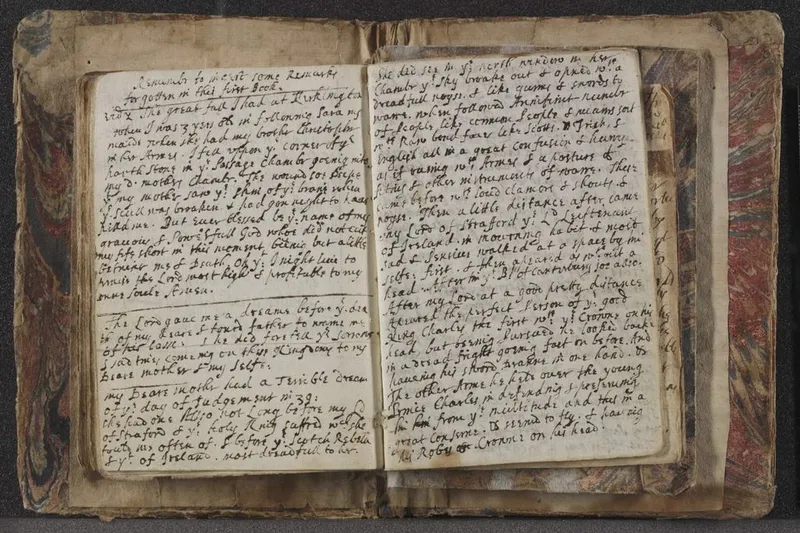 Remember to insert some Remarks
for gotten in this first Book.
The great fall I had at Kirkington
when I was 3 years old in following Sara my
maide when shey had my brother Christopher
in her Armes. I fell upon yᵉ corner of yᵉ
harth stone in yᵉ Passage Chamber goeing into
my d: mothers Chamber. The wound so deepe
yᵗ my mother saw yᵉ skin of yᵉ braine when
yᵉ scull was broaken & had gon night to have
kild me. But ever blessed be yᵉ name of my
gracious & Powerfull God whoe did not cutt
my life short in this moment, beeing but a little
betweene me & Death. Oh yᵗ I might live to
praise the Lord most high & profitable to my
owne soule Amen.
The Lord gave me a dreame before yᵉ dea
th of my deare & honrd father to warne me
of his losse. & he did foretell yᵉ sorrows
& sad times comeing on this Kingdom to my
Deare mother & my selfe.
my Deare mother had a Terrible dream
of yᵉ day of Judgement in 39:
she had one Allso not Long before my Ld
of Straford & yᵉ holy King suffred wᶜʰ she
tould me often of. & before yᵉ Scotch Rebells
& yᵗ of Ireland. most dreadfull to her.
She did see in yᵉ north window in her
Chamber yᵉ sky breake out & opned wᵗʰ a
dreadfull noyse, & like gunns & swords to
warre. when followed Annifinit number
of People like comon People & means sort
wᵗʰ Raw bond faces like Scots, & Irish, &
English all in a great confusion & hurry
as if runing wᵗʰ Armes & a posture of
sithes & other instruments of warre. These
came before wᵗʰ loud clamore & shouts &
noyse. Then a little distance after came
my Lord of Strafford yᵉ Ld Lieutenant
of Ireland in mourning habit & most
sad & Pensive walked at a space by him
selfe: first. & then apeared as wᵗʰ out a
head. After him yᵉ Bp of Canterbury soe allso.
After my Lord at a good pretty distance
apeared the perfect Person of yᵉ good
King Charles the first wᵗʰ yᵉ Crowne on his
head, but seeming Pursued he looked backe
in a dread fright goeing fast on before. And
haveing his sword drawne in one hand. &
The other Arme he held over the young
Prince Charles in defending & preserving
him from yᵉ multitude and thus in a
great conserne. & seemd to fly. & haveing
his Robes & Crowne on his head.